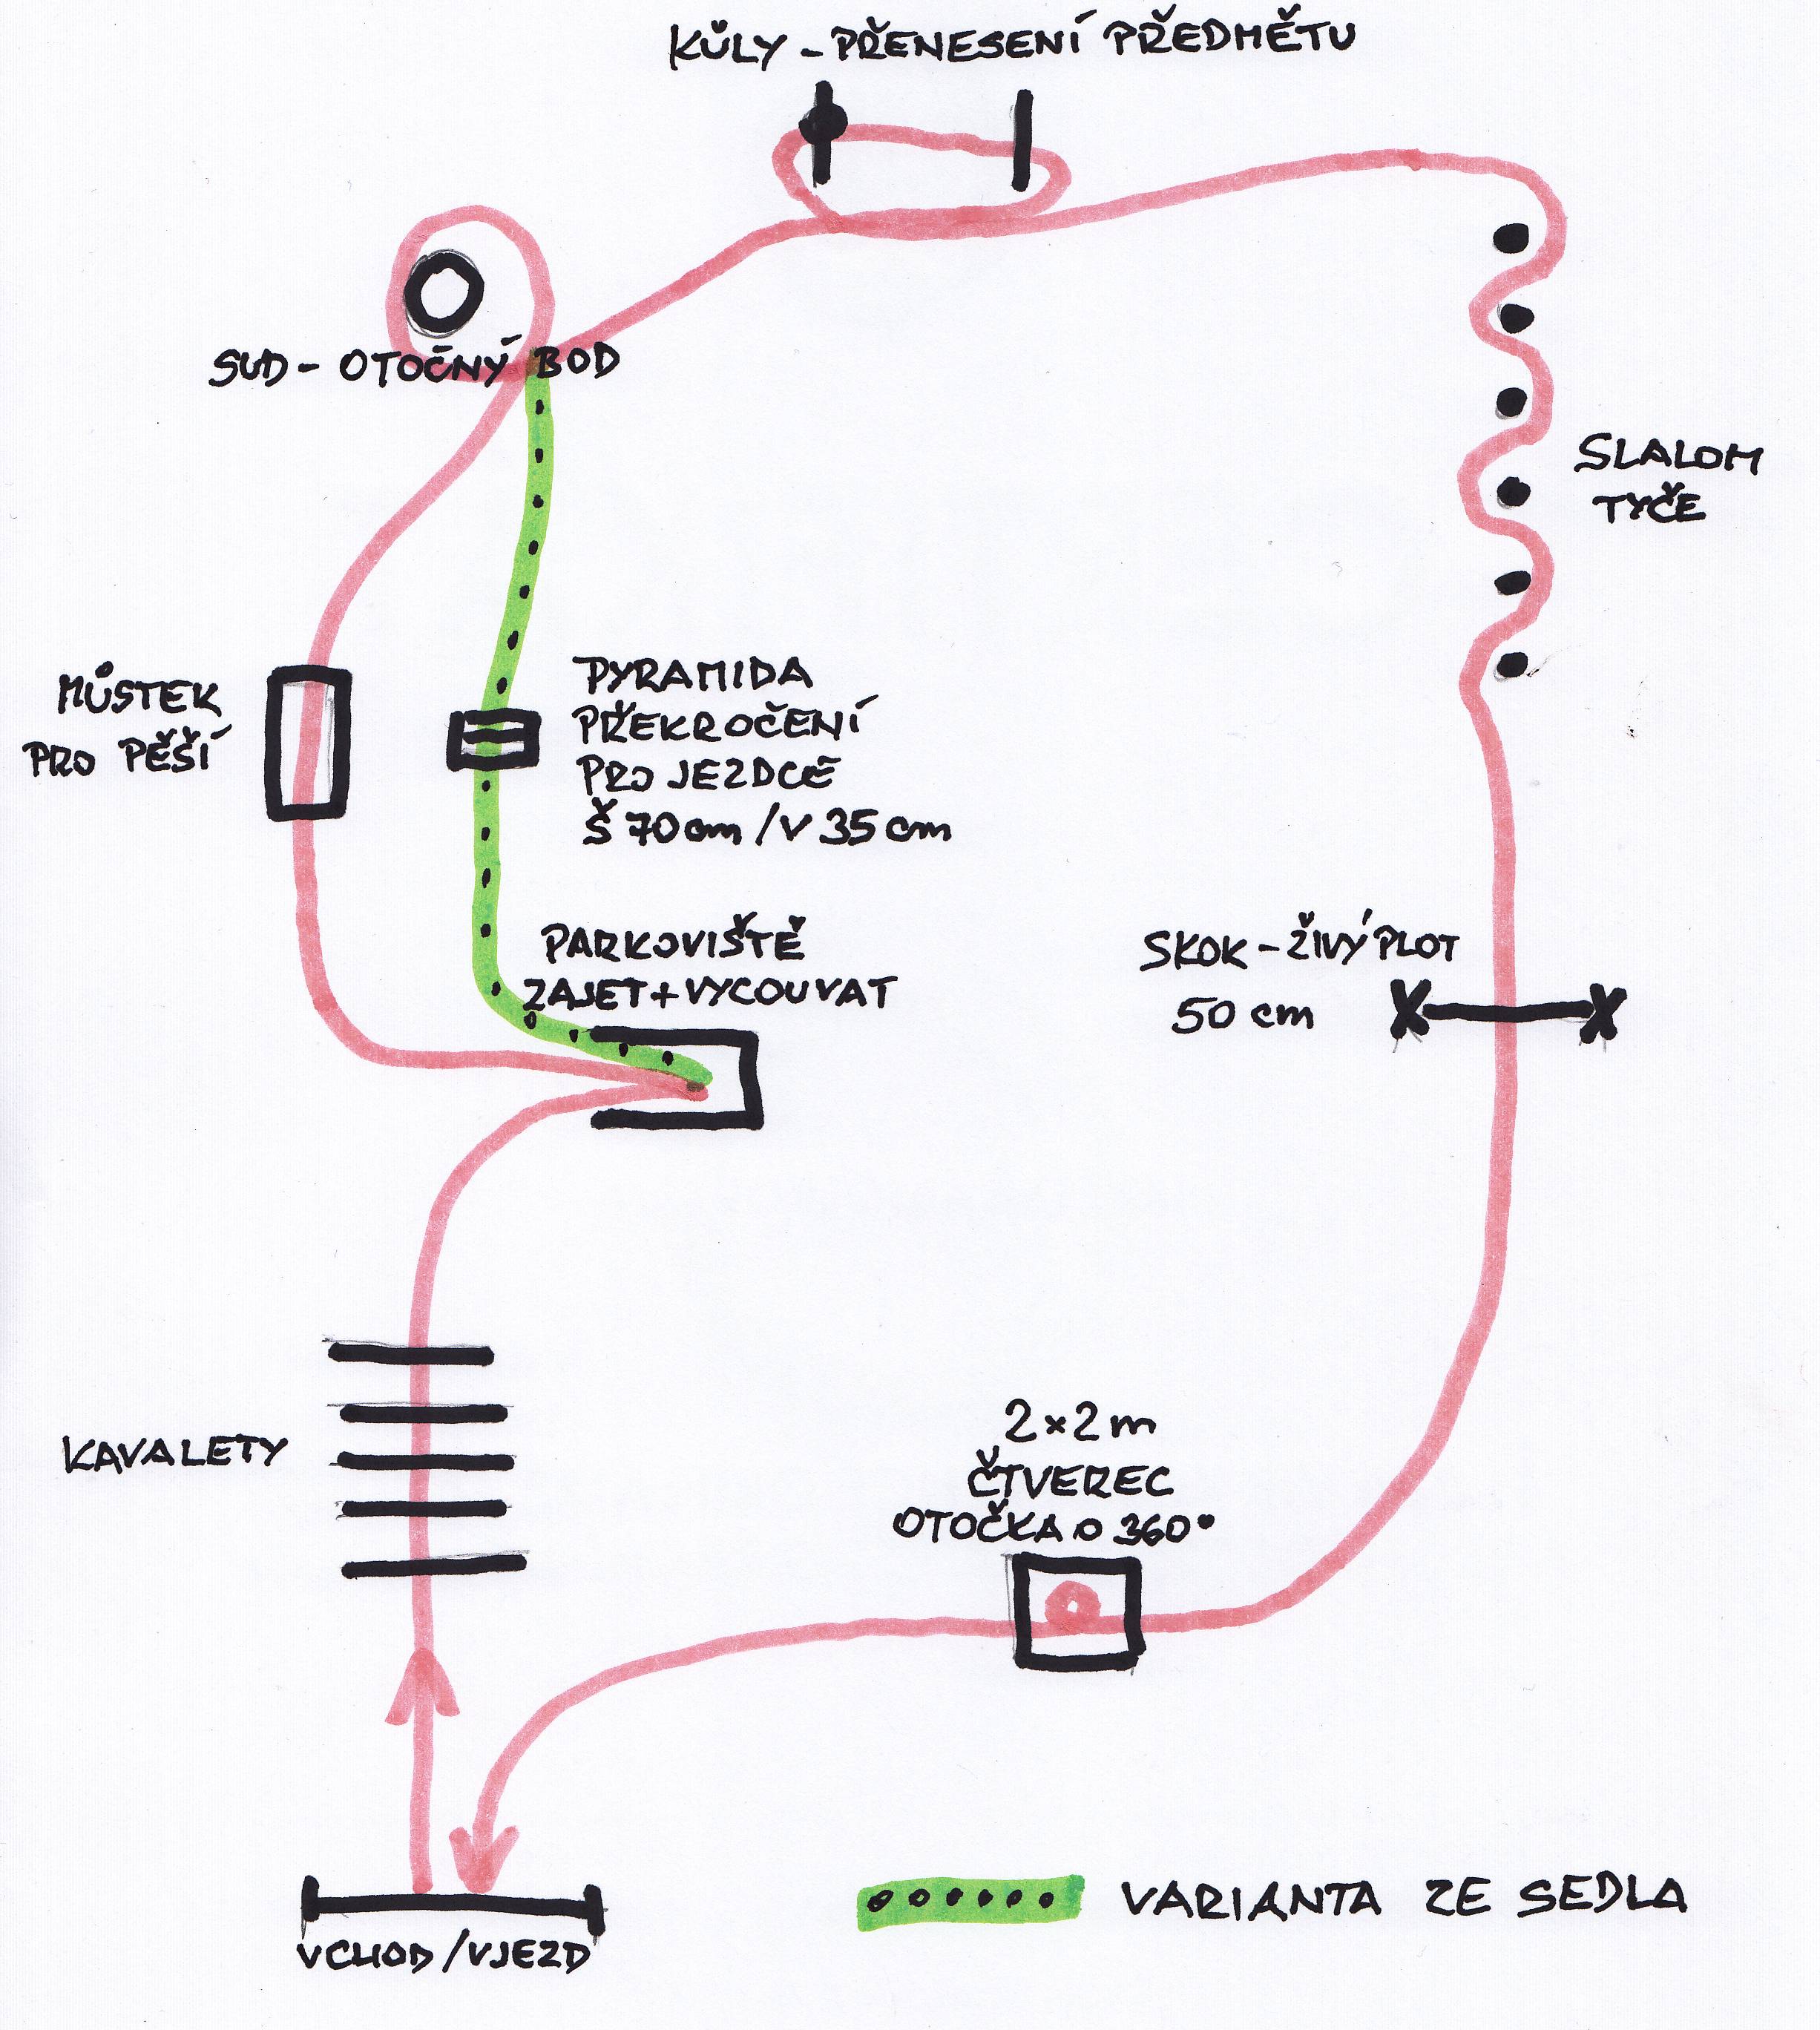 KŮLY - PŘENESENÍ PŘEDMĚTU
SUD - OTOČNÝ BOD
SLALOM
TYČE
MŮSTEK
PRO PĚŠÍ
PYRAMIDA
PŘEKROČENÍ
PRO JEZDCE
Š 70 cm / V 35 cm
PARKOVIŠTĚ
ZAJET + VYCOUVAT
SKOK - ŽIVÝ PLOT
50 cm
KAVALETY
2 × 2 m
ČTVEREC
OTOČKA O 360°
VCHOD / VJEZD
VARIANTA ZE SEDLA